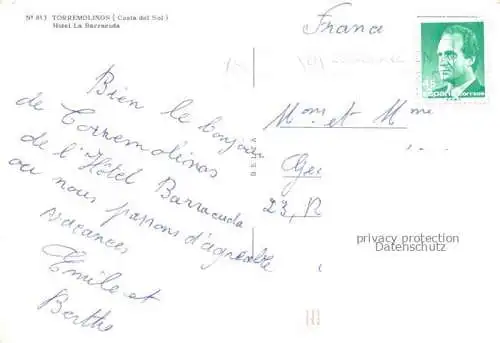 Nº 813 TORREMOLINOS (Costa del Sol)
Hotel La Barracuda
Franca
45
españa correos
Bien le bonjour
de Torremolinos
de l'Hôtel Barracuda
ou nous passons d'agreable
vacances
Emile et
Berthe
Mom et Mme
Ge
23, R
privacy protection
Datenschutz